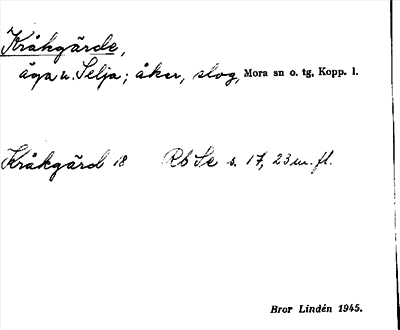 Kråkgärde,
äga u. Selja; åker, slog, Mora sn o. tg, Kopp. l.
Kråkgärd 18 Rb Se s. 17, 23 m. fl.
Bror Lindén 1945.